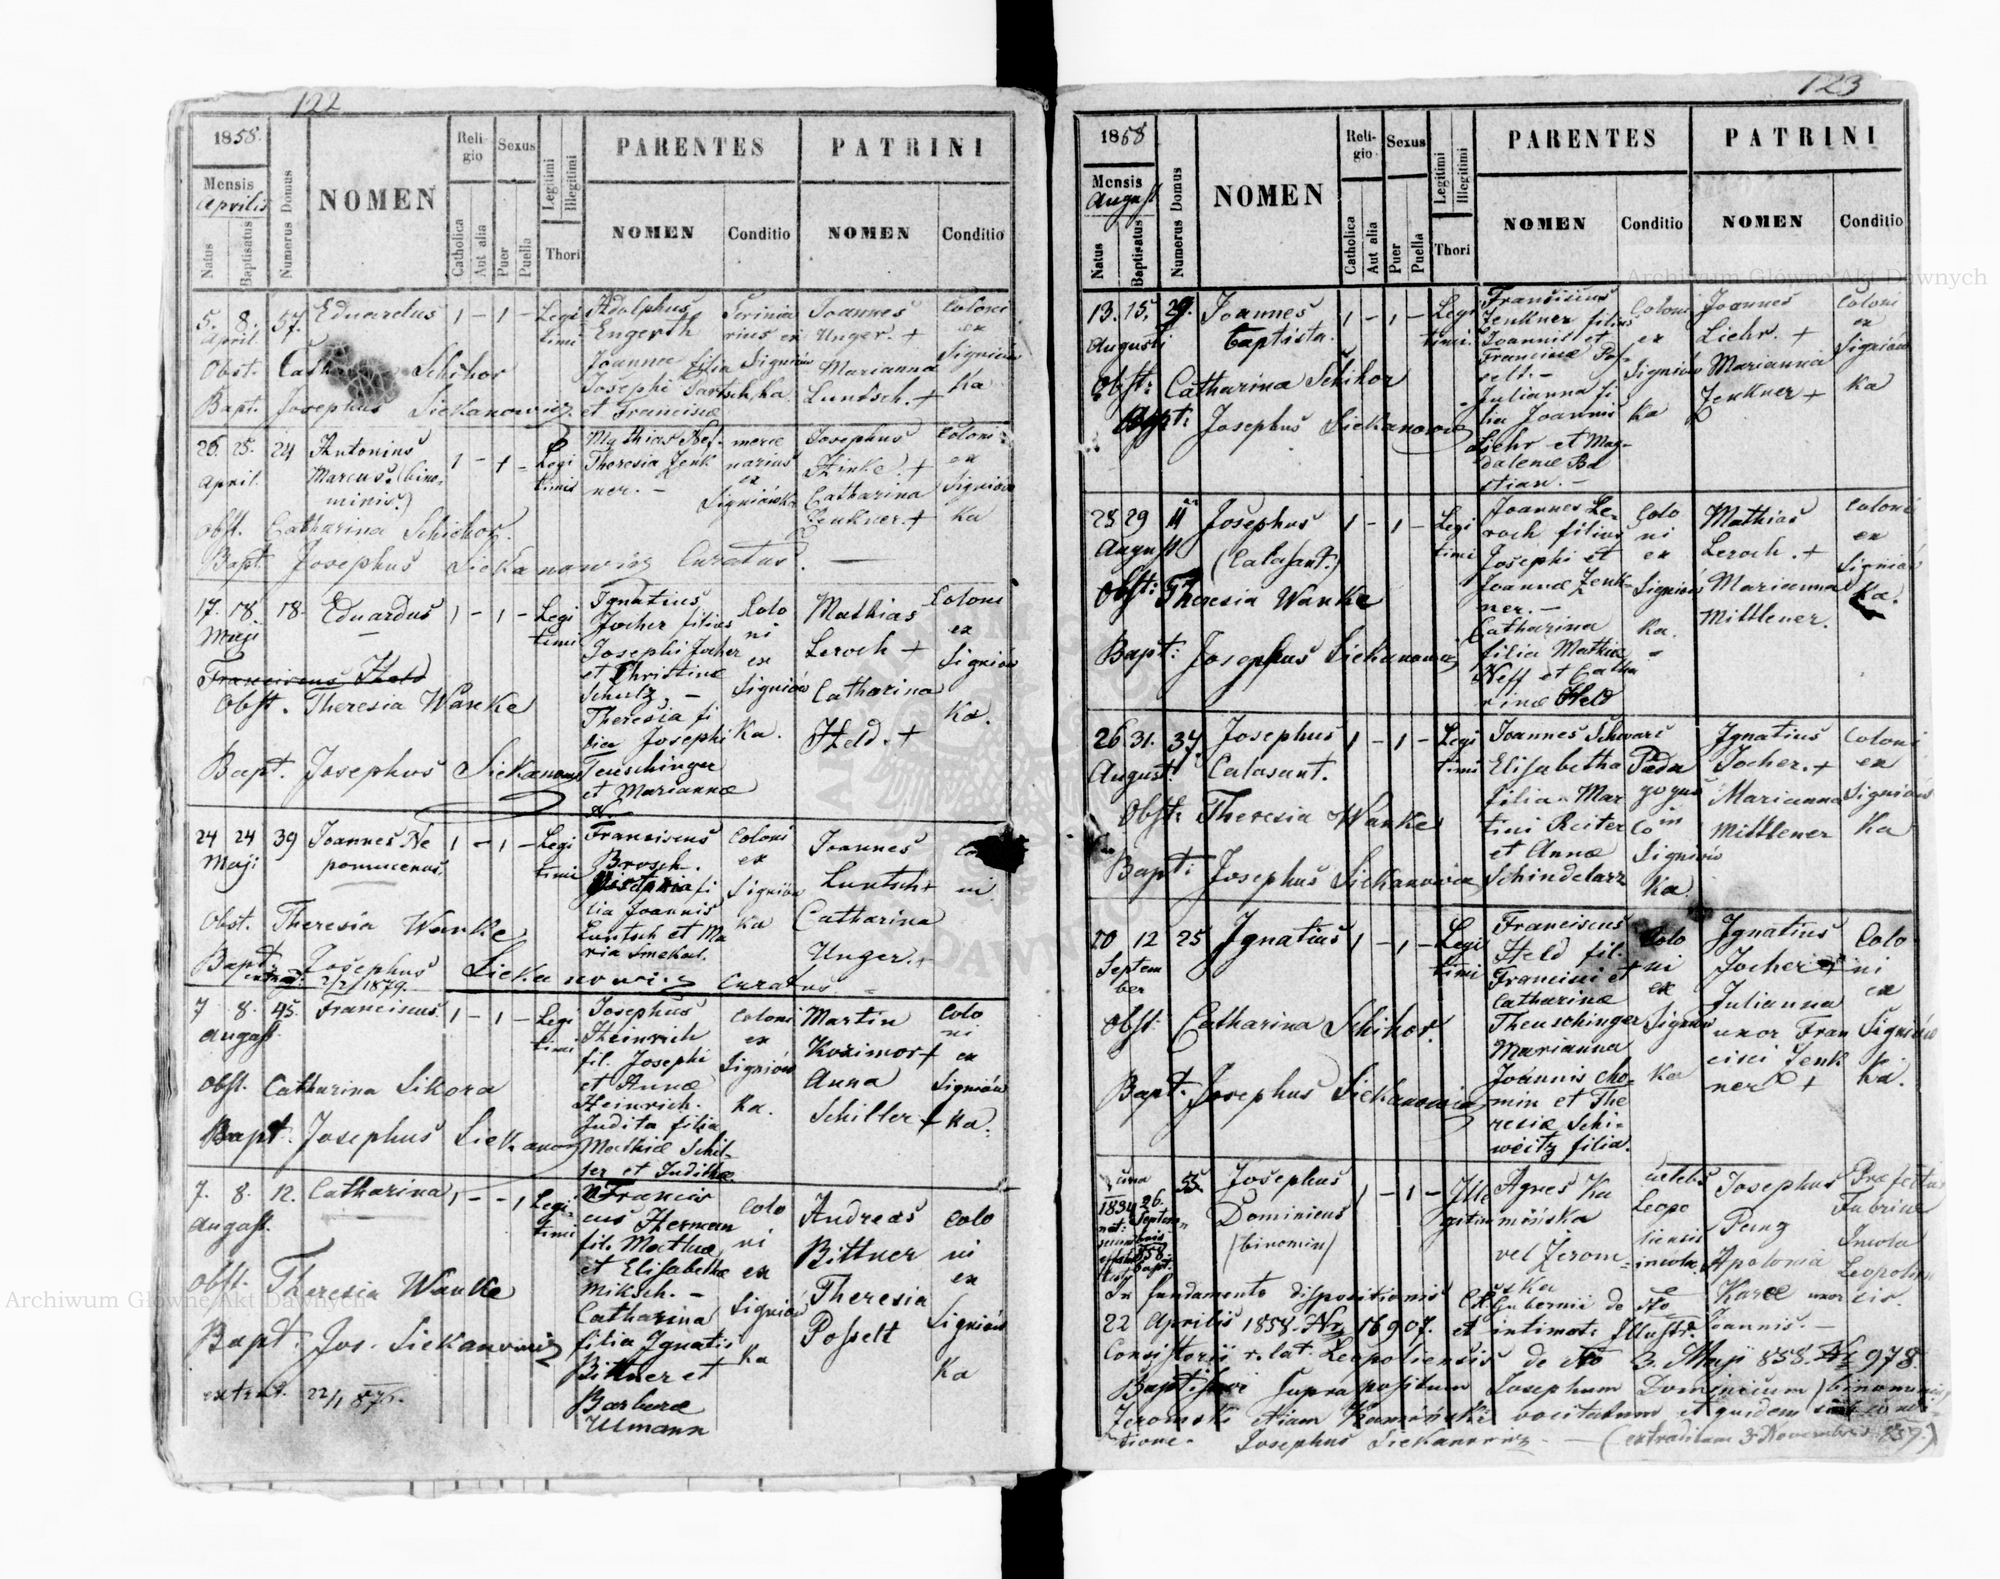 122
1858.
Mensis
Aprilis
Natus
Baptisatus
Numerus Domus
NOMEN
Religio
Catholica
Aut alia
Sexus
Puer
Puella
Legitimi
Illegitimi
Thori
PARENTES
NOMEN
Conditio
PATRINI
NOMEN
Conditio
5. 8. 57. Eduardus 1 - 1 - Legi
April.
timi
Adolphus
Engerth
Joannae filia
Josephi Bartsch
et Francisca
Joannes
Unger. +
Marianna
Luntsch. +
Coloni
ex
Signiów
ka
Obst. Schikor
Bapt. Josephus Siekanowicz
26. 25. 24 Antonius 1 - 1 - Legi
April. Marcus. (bino
minis.)
timi
Mathias Nef
Theresia Jenk
ner. -
narius
ex
Signiówka
Josephus
Hinke. +
Catharina
Jenkner. +
Coloni
ex
Signiów
ka
Obst. Catharina Schickor.
Bapt. Josephus Siekanowicz Curatus. —
17. 18. 18. Eduardus 1 - 1 - Legi
Maji
timi
Ignatius
Jocher filius
Josephi Jocher
et Christinae
Schulz. -
Theresia fi
lia Josephi
Teuschinger
et Mariannae
N.
Colo
ni
ex
Signiów
ka.
Mathias
Leroch +
Catharina
Held. +
Coloni
ex
Signiów
ka.
Franciscus Held
Obst. Theresia Wanke
Bapt. Josephus Siekanowicz
24 24 39 Joannes Ne 1 - 1 - Legi
Maji pomucenus.
timi
Franciscus
Brosch.
Victoria fi
lia Joannis
Luntsch et Ma
ria Smekal.
Coloni
ex
Signiów
ka
Joannes
Luntsch +
Catharina
Unger. +
ni
Obst. Theresia Wanke
Bapt. Josephus Siekanowicz curatus. =
extrad. 2/2/1879.
7 8. 45. Franciscus. 1 - 1 - Legi
August.
timi
Josephus
Heinrich
fil. Josephi
et Annae
Heinrich.
Judita filia
Mathiae Schil-
ler et Judithae
Coloni
ex
Signiów
ka.
Martin
Kozimor +
Anna
Schiller +
Colo
ni
ex
Signiów
ka.
Obst. Catharina Sikora
Bapt. Josephus Siekanowicz
7. 8. 12. Catharina 1 - - 1 Legi-
August.
timi
Francis
cus Herman
fil. Mathiae
et Elisabethae
Miksch. -
Catharina
filia Ignatii
Bittner et
Barbarae
Ulmann
Colo
ni
ex
Signiów
ka
Andreas
Bittner
Theresia
Posselt
Colo
ni
ex
Signiów
ka
Obst. Theresia Wanke
Bapt. Jos. Siekanowicz
extrad. 22/1 875.
123
1858
Mensis
August
Natus
Baptisatus
Numerus Domus
NOMEN
Religio
Catholica
Aut alia
Sexus
Puer
Puella
Legitimi
Illegitimi
Thori
PARENTES
NOMEN
Conditio
PATRINI
NOMEN
Conditio
13. 15. 29. Joannes 1 - 1 - Legi
Augusti Baptista.
timi.
Franciscus
Jenkner filius
Joannis et
Franciscae Pos-
selt. -
Julianna fi
lia Joannis
Liehr et Mag-
dalenae Ba
stian. -
Coloni
ex
Signiów
ka
Joannes
Liehr. +
Marianna
Jenkner +
Coloni
ex
Signiów
ka
Obst: Catharina Schikor
Bapt: Josephus Siekanowicz
25 29 11 Josephus 1 - 1 - Legi
August (Calasant.)
timi
Joannes Le-
roch filius
Josephi et
Joannae Jenk-
ner. -
Catharina
filia Mathiae
Neff et Catha
rinae Held
Colo
ni
ex
Signiów
ka.
Mathias
Leroch. +
Marianna
Mittlener.
Coloni
ex
Signiów
ka.
Obst: Theresia Wanke
Bapt: Josephus Siekanowicz
26. 31. 37. Josephus 1 - 1 - Legi
August. Calasant.
timi
Joannes Schwarz
Elisabetha
filia Mar
tini Reiter
et Annae
Schindelarz
Peda
gogus
in
Co
Signiów
ka
Ignatius
Jocher. +
Marianna
Mittlener
Coloni
ex
Signiów
ka
Obst: Theresia Wanke
Bapt: Josephus Siekanowicz
10 12 25 Ignatius 1 - 1 - Legi
Septem
ber
timi
Franciscus
Held fil.
Francisci et
Catharinae
Theuschinger
Marianna
Joannis Cho-
min et The
resiae Schi-
weitz filia.
Colo
ni
ex
Signiów
ka
Ignatius
Jocher +
Julianna
uxor Fran
cisci Jenk
ner +
Colo
ni
ex
Signiów
ka.
Obst: Catharina Schikor.
Bapt. Josephus Siekanowicz
circa
1834 26. 55 Josephus 1 - 1 - Ille
Septem Dominicus
(binomin)
858.
Bapt.
Agnes Ka
mińska
vel Jerom-
ska
caelebs
Leopo
liensis
incola.
Josephus
Peng
Apolonia
Karae uxor
Joannis. -
Praefectus
Fabricae
Incola
Leopolien
sis.
In fundamento dispositionis C.R. Gubernii de dto
22 Aprilis 1858. Nr. 16907. et intimati Illustr.
Consistorii r. lat. Leopoliensis de dto 3. Maji 858. Nr 978.
Baptisavi supra positum Josephum Dominicum (binominis)
Jeromski etiam Kamiński vocitatum et quidem sub condi-
tione. Josephus Siekanowicz. — (extraditum 3 Novembris 859.)
Archiwum Główne Akt Dawnych
Archiwum Główne Akt Dawnych